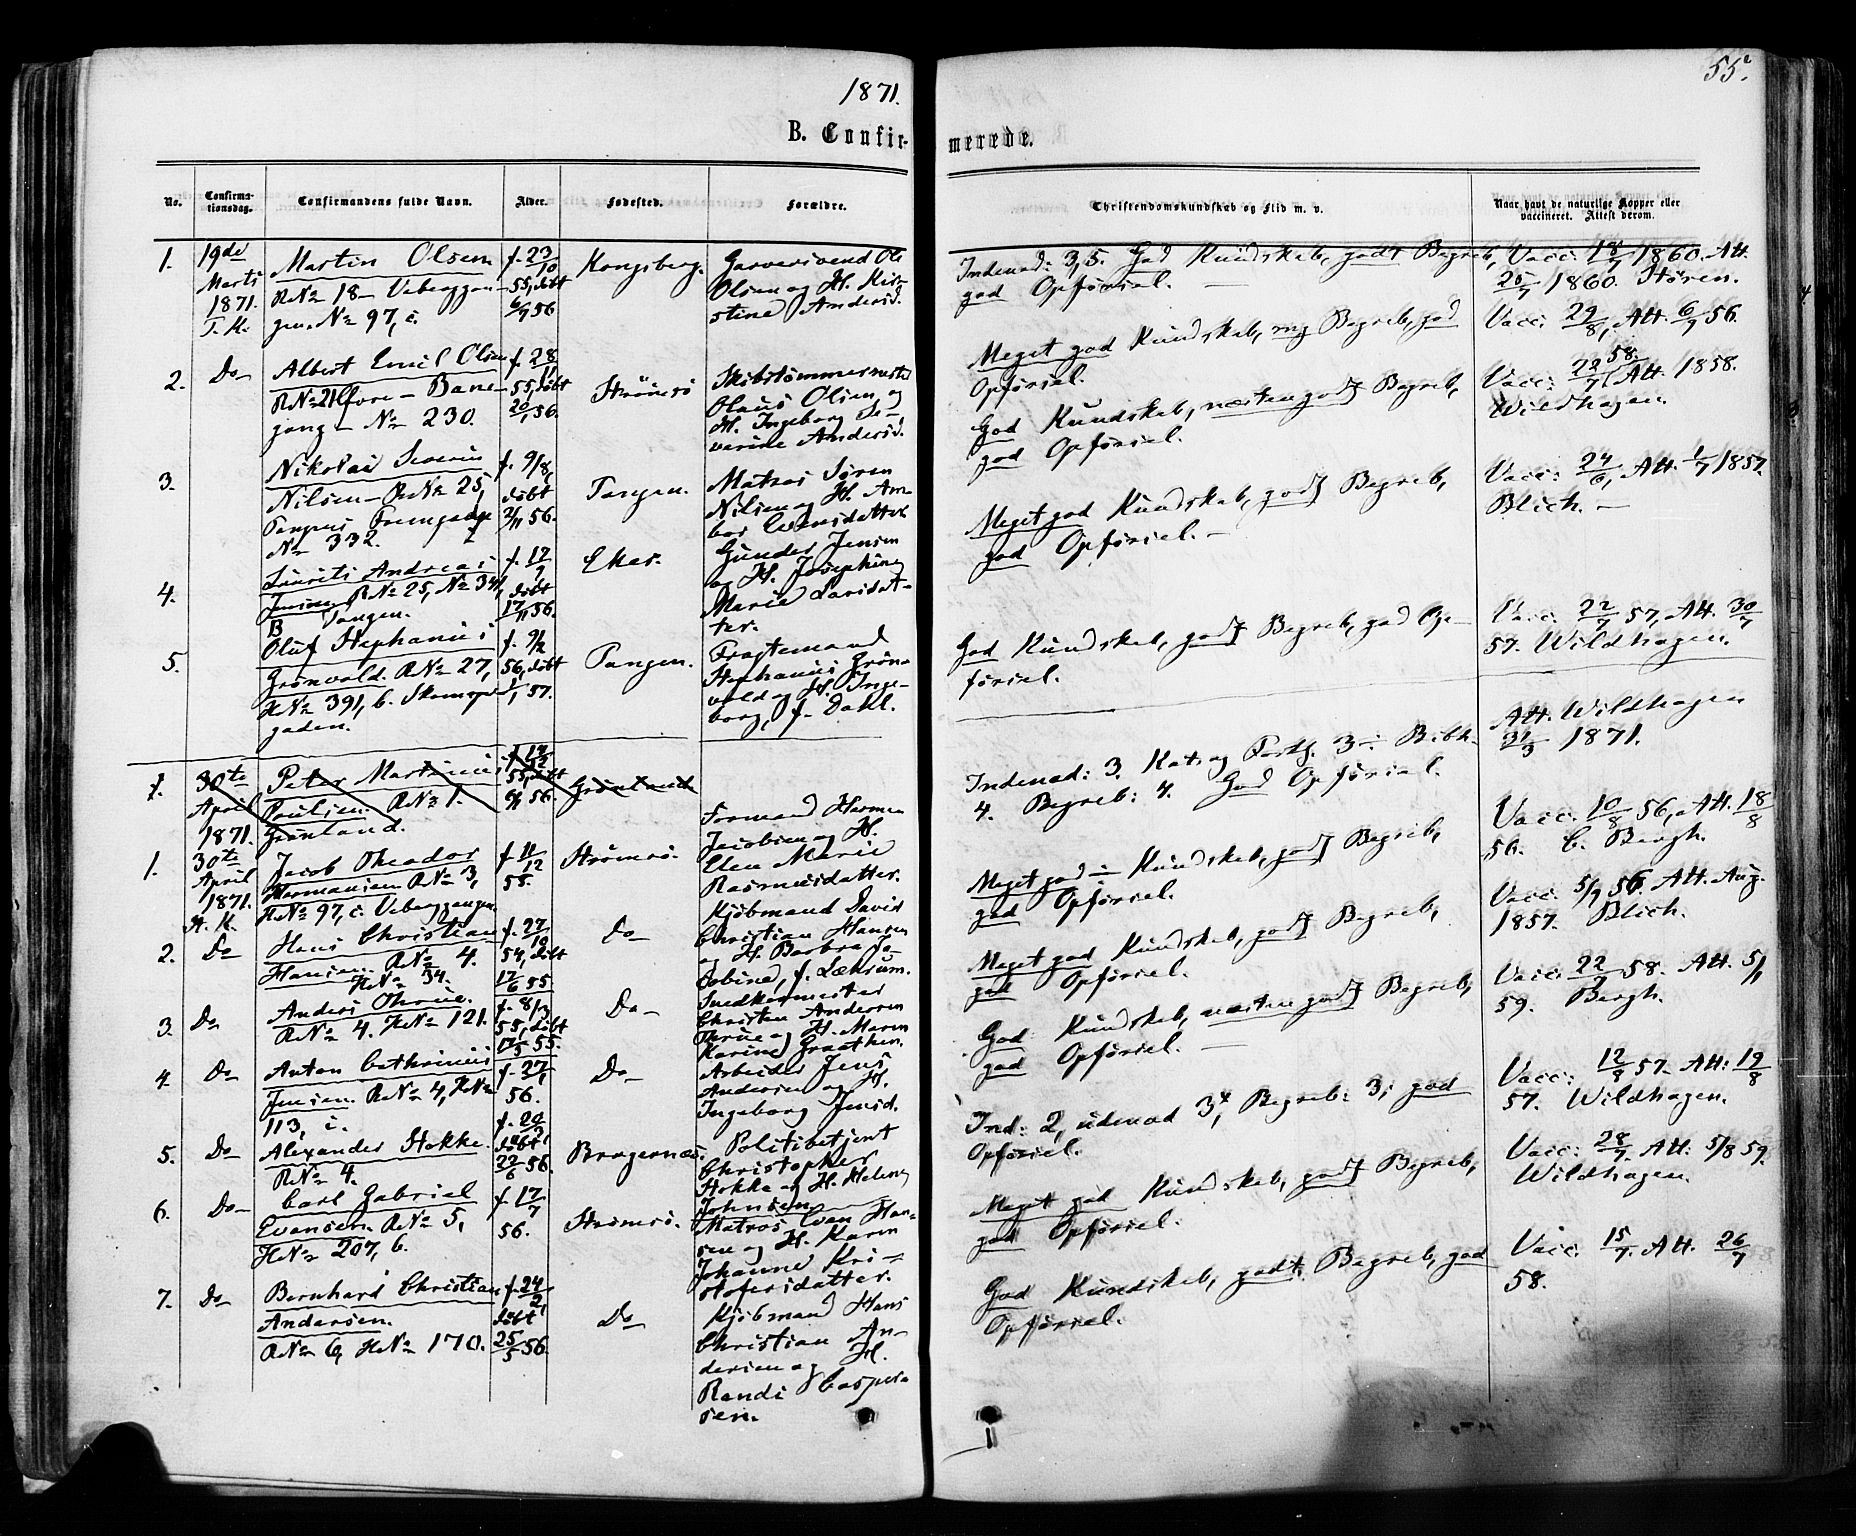 1871.
55.
B. Confir-
merede.
No.
Confirma-
tionsdag.
Confirmandens fulde Navn.
Alder.
Fødested.
Forældre.
Christendomskundskab og Flid m. v.
Naar havt de naturlige Kopper eller
vaccineret. Attest derom.
1.
19de
Marti
1871.
T. K.
Martin Olsen
RNo 18 - Veberggan-
gen. No 97, c.
f. 23/10
55, døbt
6/7 56
Kongsberg.
Garversvend Ole
Olsen og H. Kir-
stine Andersd.
Indenad: 3,5. God Kundskab, godt Begreb,
god Opførsel. —
Vacc: 18/7 1860. Att.
25/7 1860. Støren.
2.
Do
Albert Emil Olsen
RNo 21 Øvre - Bane-
gang - No 230.
f. 28/11
55, døbt
20/1 56.
Strömsö
Skibstømmermester
Olaus Olsen og
H. Ingeborg Se-
verine Andersd.
Meget god Kundskab, mg Begreb, god
Opførsel.
Vacc: 29/8, Att. 6/9 56.
3.
Nikolai Severin
Nilsen - RNo 25,
Tangens Fremgang
No 332.
f. 9/8,
døbt
2/11 56.
Tangen.
Matros Søren
Nilsen og H. Am-
bor Evensdatter
God Kundskab, næsten godt Begreb,
god Opførsel.
Vacc: 22/7 58. Att. 1858.
Wildhagen.
4.
Laurits Andreas
Jensen RNo 25, No 341,
B Tangen.
f. 17/7
døbt
17/11 56.
Eker.
Gunder Jensen
og H. Josephine
Marie Larsdat-
ter.
Meget god Kundskab, godt Begreb,
god Opførsel. —
Vacc: 24/6, Att. 1/7 1857.
Blich. —
5.
Oluf Stephanus
Grønvold. RNo 27,
HNo 391, b. Skomager-
gaden.
f. 9/12
56, døbt
1/1 57.
Tangen.
Fragtemand
Stephanus Grøn-
vold og H. Inge-
borg, f. Dahl.
God Kundskab, godt Begreb, god Op-
førsel.
Vacc: 22/7 57, Att. 30/7
57. Wildhagen.
1.
30te
April
1871.
Peter Martinius
Poulsen. RNo 1.
Grønland.
f. 17/12
55, døbt
6/1 56.
Grønland
Indenad: 3. Kat. og Forkl. 3÷ Bibh.
4. Begreb: 4. God Opførsel.
Att. Wildhagen
31/3 1871.
1.
30te
April
1871.
St. K.
Jacob Theodor
Hermansen RNo 3,
HNo 97, c. Veberggangen.
f. 11/12
55.
Strømsö.
Formand Herman
Jacobsen og H.
Elen Marie
Rasmusdatter.
Meget god ÷ Kundskab, godt Begreb,
god Opførsel.
Vacc: 10/8 56, Att. 18/8
56. C. Bergh.
2.
Do
Hans Christian
Hansen. RNo 4.
HNo 34.
f. 27/10
54, døbt
17/6 55
Do
Kjøbmand David
Christian Hansen
og H. Barbra Ja-
cobine, f. Læhrum.
Meget god Kundskab, godt Begreb,
god Opførsel.
Vacc: 5/9 56. Att. Aug.
1857. Blich.
3.
Do
Anders Thrue.
RNo 4. HNo 121.
f. 8/3
55, døbt
17/5 55.
Do
Snedkermester
Christen Andersen
Thrue og H. Maren
Karine Graathen.
God Kundskab, næsten godt Begreb,
god Opførsel. —
Vacc: 22/7 58. Att. 5/1
59. Bergh.
4.
Do
Anton Cathrinus
Jensen. RNo 4, HNo
113, c.
f. 27/1
56.
Do
Arbeider Jens
Andersen og H.
Ingeborg Jensd.
Ind: 2, udenad 3, Begreb: 3; god
Opførsel.
Vacc: 12/8 57. Att: 19/8
57. Wildhagen.
5.
Do
Alexander Stokke.
RNo 4.
f. 20/3
døbt
22/6 56.
Bragernæs.
Politibetjent
Christopher
Stokke og H. Helene
Johnsen
Meget god Kundskab, godt Begreb,
god Opførsel.
Vacc: 28/7. Att: 5/8 59.
Wildhagen.
6.
Do
Carl Gabriel
Evensen. RNo 5,
HNo 207, b.
f. 17/7
56.
Strømsö.
Matros Evan Han-
sen og H. Karen
Johanne Kri-
stofersdatter.
God Kundskab, godt Begreb, god
Opførsel.
Vacc: 15/7. Att. 26/7
58.
7.
Do
Bernhard Christian
Andersen.
RNo 6, HNo 170.
f. 24/2
døbt
25/5 56.
Do
Kjøbmand Hans
Christian An-
dersen og H.
Randi Caspar-
sen.